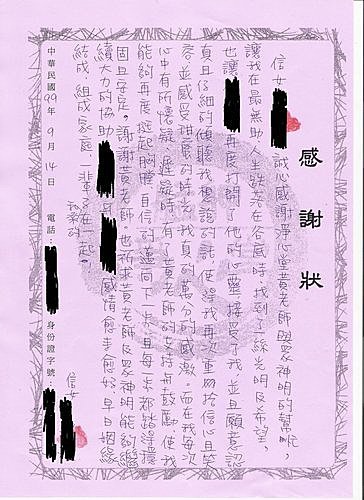 感謝狀
信女 誠心感謝淨心堂黃老師與眾神明的幫忙,
讓我在最無助人生跌落在谷底時,找到了一絲光明及希望,
也讓 再度打開了他的心靈,接受了我並且願意認
真且仔細的傾聽我想說的話,使得我再次重拾信心且笑
容,並感受甜蜜的時光,我真的萬分的感激。而在我每次
心中有所懷疑、遲疑時,有了黃老師的支持與鼓勵,使我
能夠再度挺起胸膛自信的邁向下一步,且每一步都踏得穩
固且安定。謝謝黃老師。也祈求黃老師及眾神明能夠繼
續大力的協助 與 感情愈來愈好,早日姻緣
結成,組成家庭,
在一起。
信女
中華民國 99 年 9 月 14 日 電話: 身份證字號: